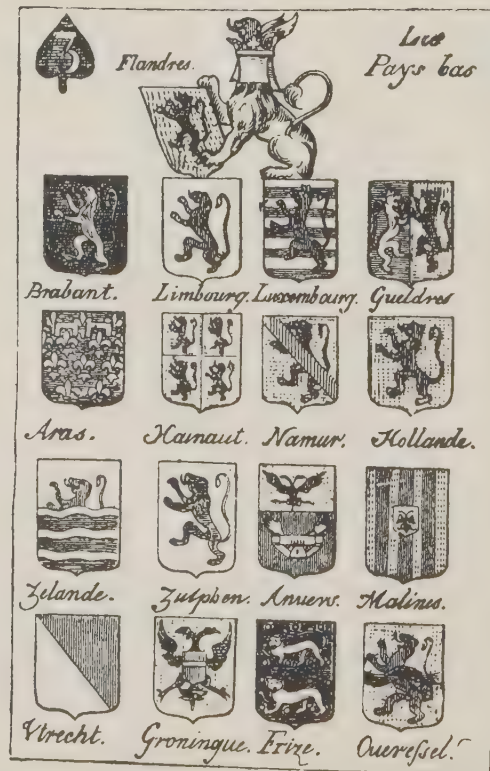 5
Flandres.
Les
Pays bas
Brabant. Limbourg. Luxembourg. Gueldres
Aras. Hainaut. Namur. Hollande.
Zelande. Zutphen. Anuers. Malines.
Vtrecht. Groningue. Frize. Oueressel.